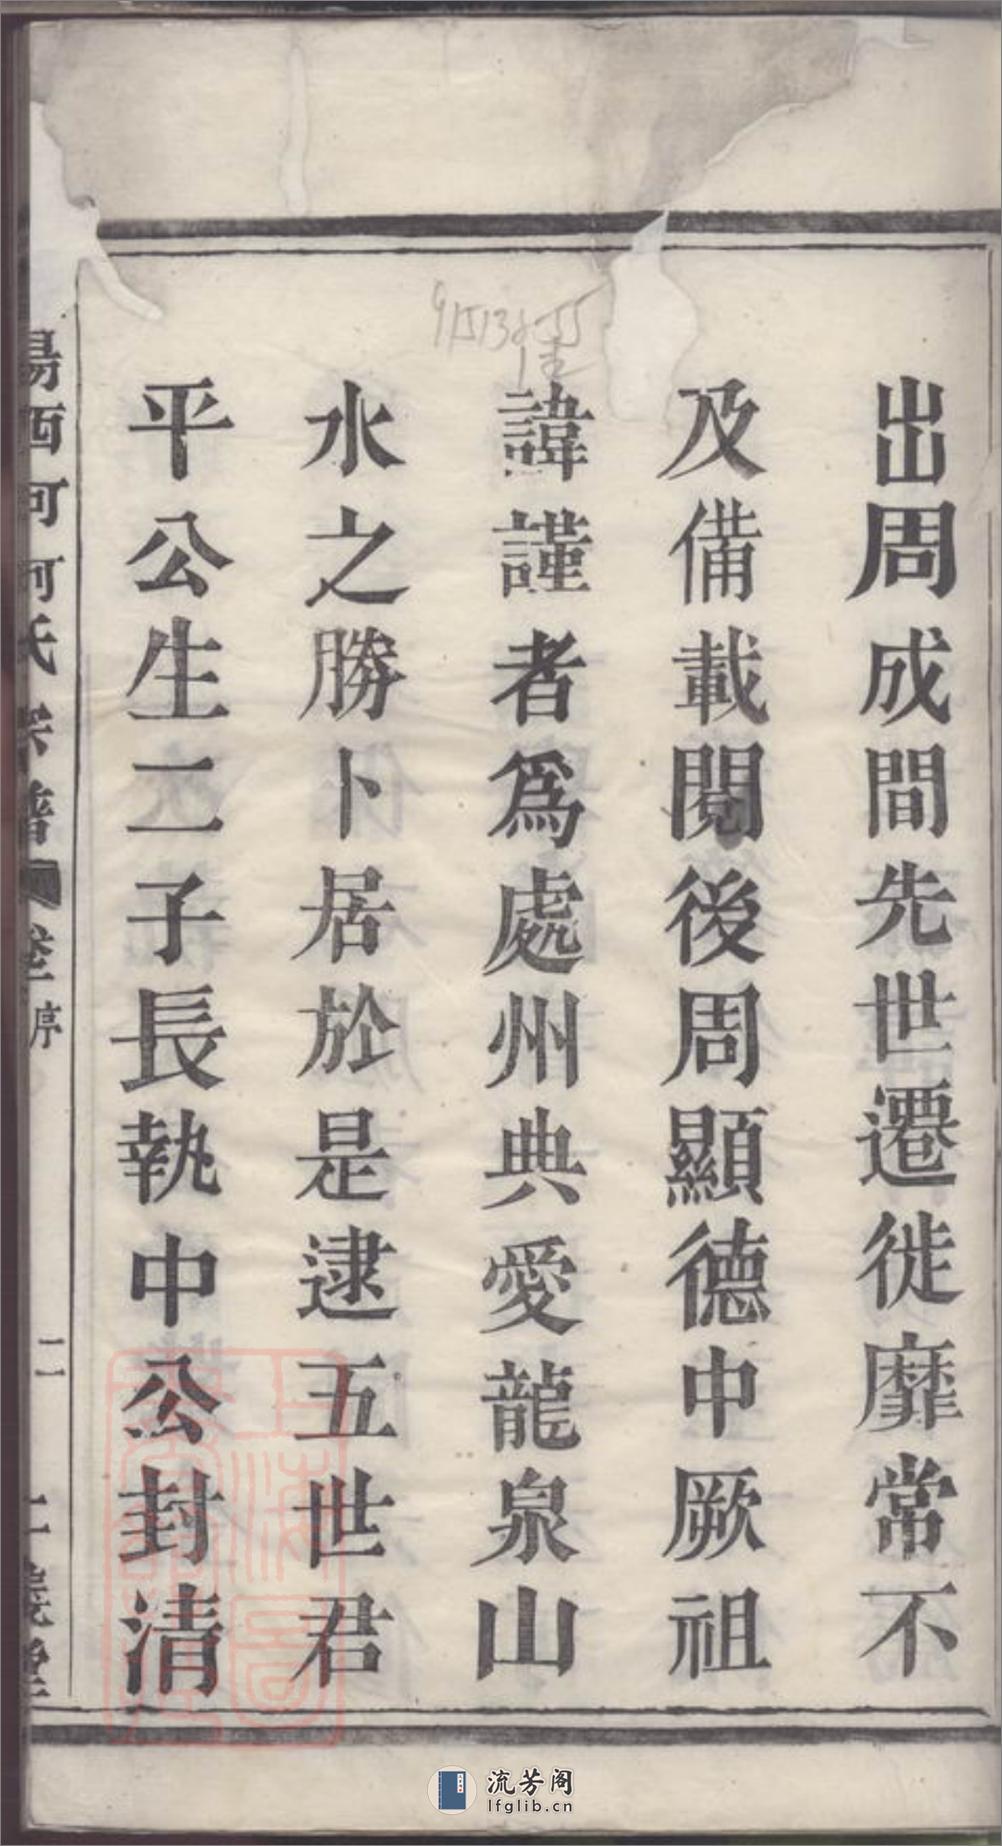 出周成間先世遷徙靡常不
及備載閱後周顯德中厥祖
諱謹者爲處州典愛龍泉山
水之勝卜居於是逮五世君
平公生二子長執中公封清
陽西河何氏宗譜 卷一 序 二
義堂
流芳阁
lfglib.cn